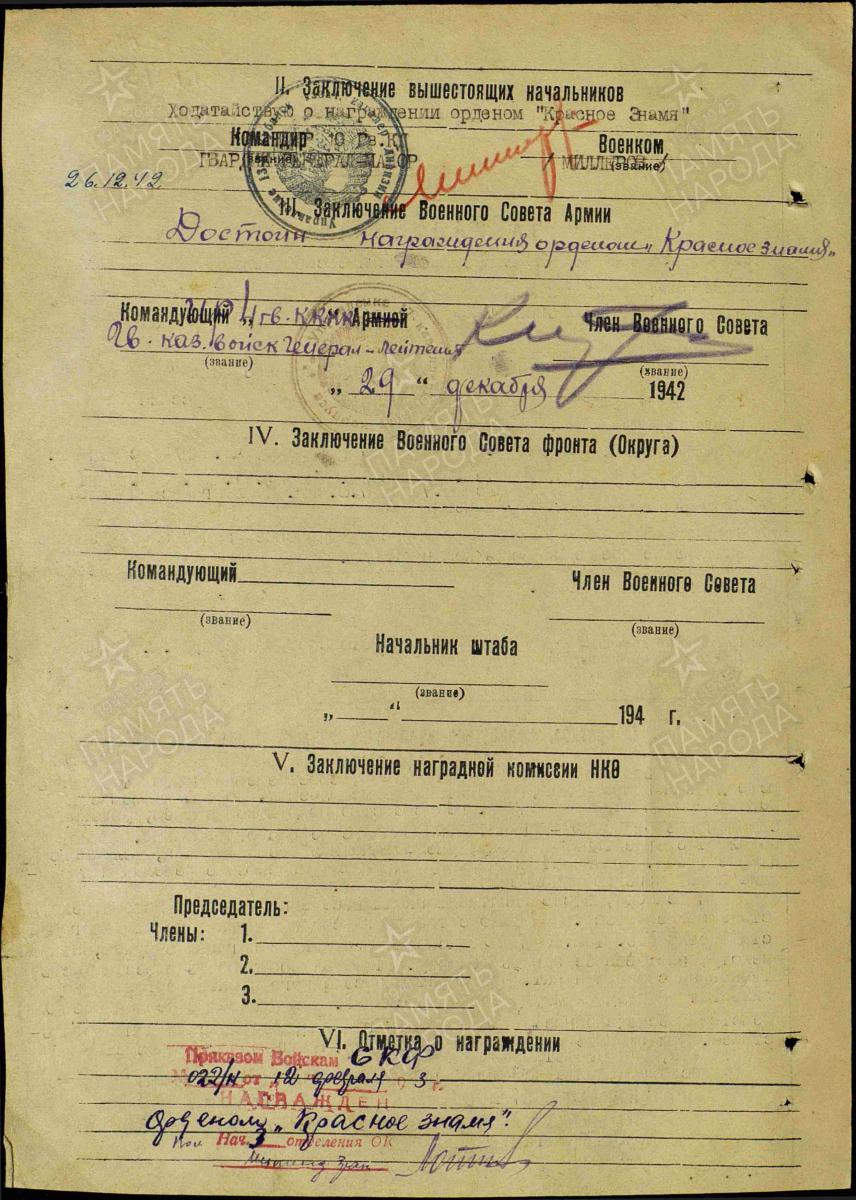 II. Заключение вышестоящих начальников
Ходатайствую о награждении орденом "Красное Знамя"
Командир 10 Гв.КД Военком
ГВАРДИИ ГЕНЕРАЛ-МАЙОР / МИЛЛЕРОВ /
(звание) (звание)
26.12.42
III. Заключение Военного Совета Армии
Достоин награждения орденом „Красное знамя"
Командующий 4 гв. ККК Армией Член Военного Совета
Гв. каз. войск Генерал-лейтенант
(звание) (звание)
„ 29 " декабря 1942
IV. Заключение Военного Совета фронта (Округа)
Командующий Член Военного Совета
(звание) (звание)
Начальник штаба
(звание)
„ " 194 г.
V. Заключение наградной комиссии НКО
Председатель:
Члены: 1.
2.
3.
VI. Отметка о награждении
Приказом Войскам СКФ
022/н от 12 февраля 3 г.
НАГРАЖДЕН
Орденом „Красное знамя".
Нач. 3 отделения ОК
ПАМЯТЬ НАРОДА
ПАМЯТЬ НАРОДА
ПАМЯТЬ НАРОДА
ПАМЯТЬ НАРОДА
ПАМЯТЬ НАРОДА
ПАМЯТЬ НАРОДА